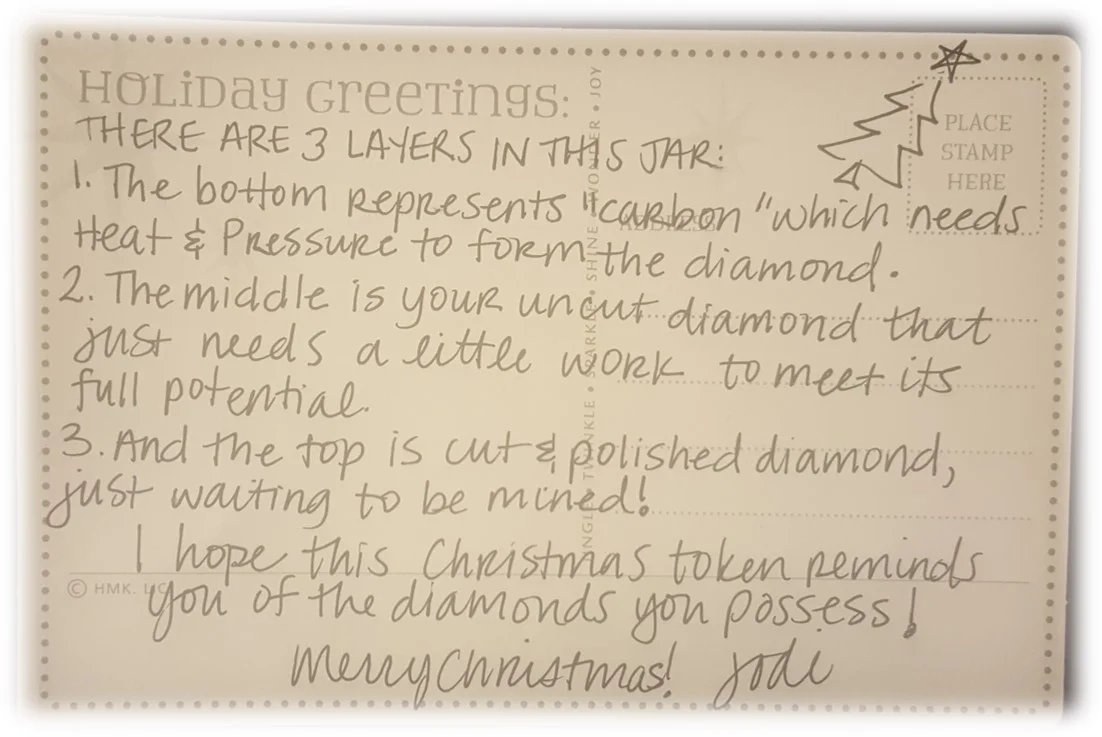 HOLiDay GReeTinGS:
PLACE
STAMP
HERE
THERE ARE 3 LAYERS IN THIS JAR:
1. The bottom represents "carbon" which needs
Heat & Pressure to form the diamond.
2. The middle is your uncut diamond that
just needs a little work to meet its
full potential.
3. And the top is cut & polished diamond,
just waiting to be mined!
I hope this Christmas token reminds
you of the diamonds you possess!
Merry Christmas! Jodi
ADDRESS
TWINKLE • SPARKLE • SHINE • WONDER • JOY
© HMK. LIC